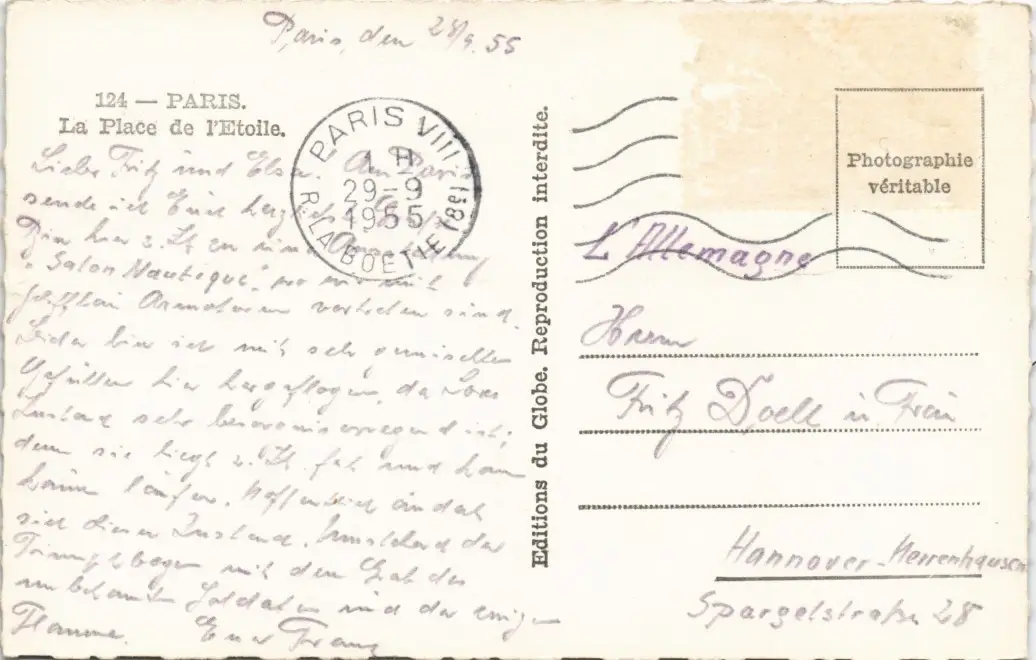 Paris, den 28/9. 55
124 — PARIS.
La Place de l'Etoile.
Liebe Fritz und Elsa! Aus Paris
sende ich Euch herzliche
Bin hier z. Zt. zu einer
"Salon Nautique", wo wir mit
Armaturen vertreten sind.
Leider bin ich mit sehr gemischten
Gefühlen hier hergeflogen, da
Zustand sehr besorgniserregend ist,
denn sie liegt z. Zt. fest und kann
kaum laufen. Hoffentlich ändert
sich dieser Zustand. Umstehend der
Triumpfbogen mit dem Grab des
unbekannten Soldaten und der ewigen
Flamme. Euer Franz
PARIS VIII
1 H
29-9
1955
R. LA BOETIE (8e)
Editions du Globe. Reproduction interdite.
Photographie
véritable
L'Allemagne
Herrn
Fritz Doell u Frau
Hannover-Herrenhausen
Spargelstraße 28